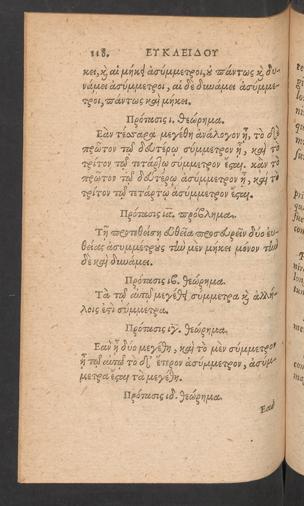 118. ΕΥΚΛΕΙΔΟΥ
κει, κ̀ αἱ μήκει ἀσύμμετροι, οὐ πάντως κ̀ δυ-
νάμει ἀσύμμετροι, αἱ δὲ δυνάμει ἀσύμμε-
τροι, πάντως καὶ μήκει.
Πρότασις ι. θεώρημα.
Εὰν τέσσαρα μεγέθη ἀνάλογον ᾖ, τὸ δὲ
πρῶτον τῷ δευτέρῳ σύμμετρον ᾖ, καὶ τὸ
τρίτον τῷ τετάρτῳ σύμμετρον ἔσται. κἂν τὸ
πρῶτον τῷ δευτέρῳ ἀσύμμετρον ᾖ, καὶ τὸ
τρίτον τῷ τετάρτῳ ἀσύμμετρον ἔσται.
Πρότασις ια. πρόβλημα.
Τῇ προτεθείσῃ εὐθείᾳ προσευρεῖν δύο εὐ-
θείας ἀσυμμέτρους τὴν μὲν μήκει μόνον τὴν
δὲ καὶ δυνάμει.
Πρότασις ιβ. θεώρημα.
Τὰ τῷ αὐτῷ μεγέθει σύμμετρα κ̀ ἀλλή-
λοις ἐστὶ σύμμετρα.
Πρότασις ιγ. θεώρημα.
Εὰν ᾖ δύο μεγέθη, καὶ τὸ μὲν σύμμετρον
ᾖ τῷ αὐτῷ τὸ δ' ἕτερον ἀσύμμετρον, ἀσύμ-
μετρα ἔσται τὰ μεγέθη.
Πρότασις ιδ. θεώρημα.
Εὰν